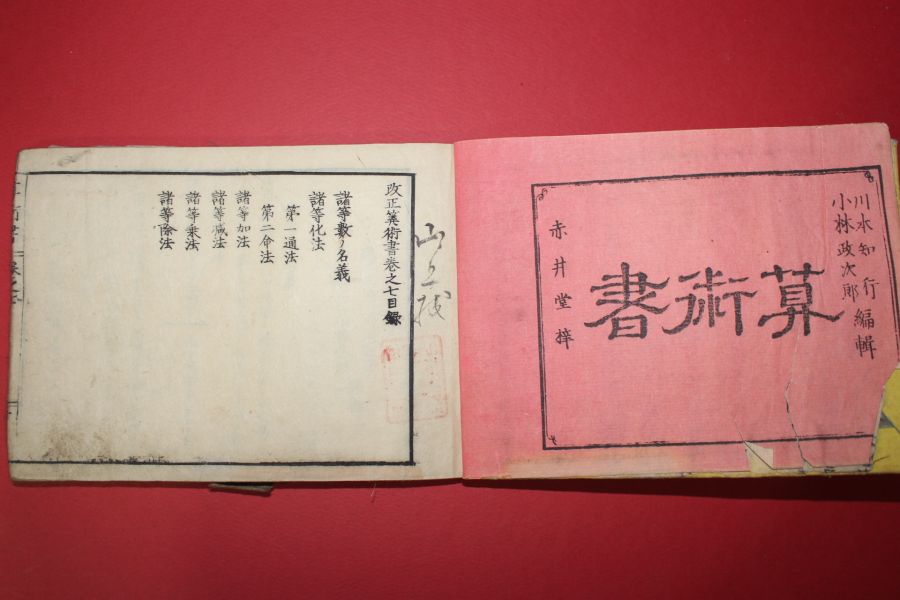 川本知行
小林政次郎 編輯
算術書
赤井堂梓
改正筭術書巻之七目録
諸等数ノ名義
諸等化法
第一通法
第二命法
諸等加法
諸等减法
諸等乗法
諸等除法